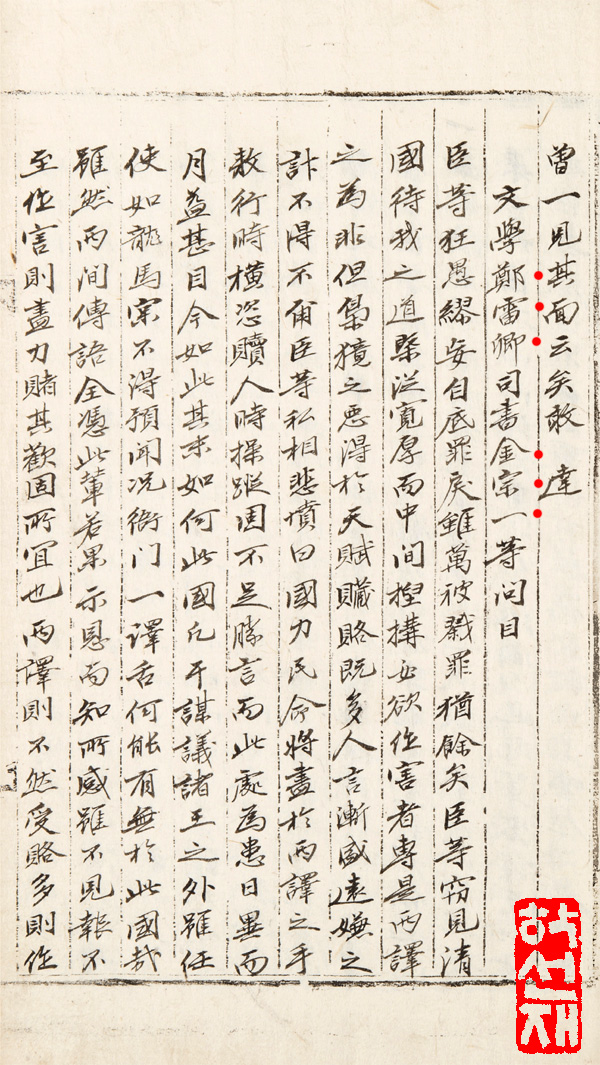 曾一見其面云矣敢 達
文學鄭雷卿司書金宗一等問目
臣等狂愚繆妄自底罪戾雖萬被戮罪猶餘矣臣等窃見清
國待我之道槩從寬厚而中間揑搆必欲作害者專是兩譯
之為非但梟獍之惡得於天賦贓賂既多人言漸盛遠嫌之
計不得不爾臣等私相悲憤曰國力民命將盡於兩譯之手
敕行時橫恣贖人時操蹤固不足勝言而此處為患日甚而
月益甚目今如此其末如何此國凡干謀議諸王之外雖任
使如龍馬宗不得預聞况衙门一譯舌何能有無於此國哉
雖然兩間傳語全憑此輩若果示恩而知所感雖不見報不
至作害則盡力賭其歡固所宜也兩譯則不然受賂多則作
하서재